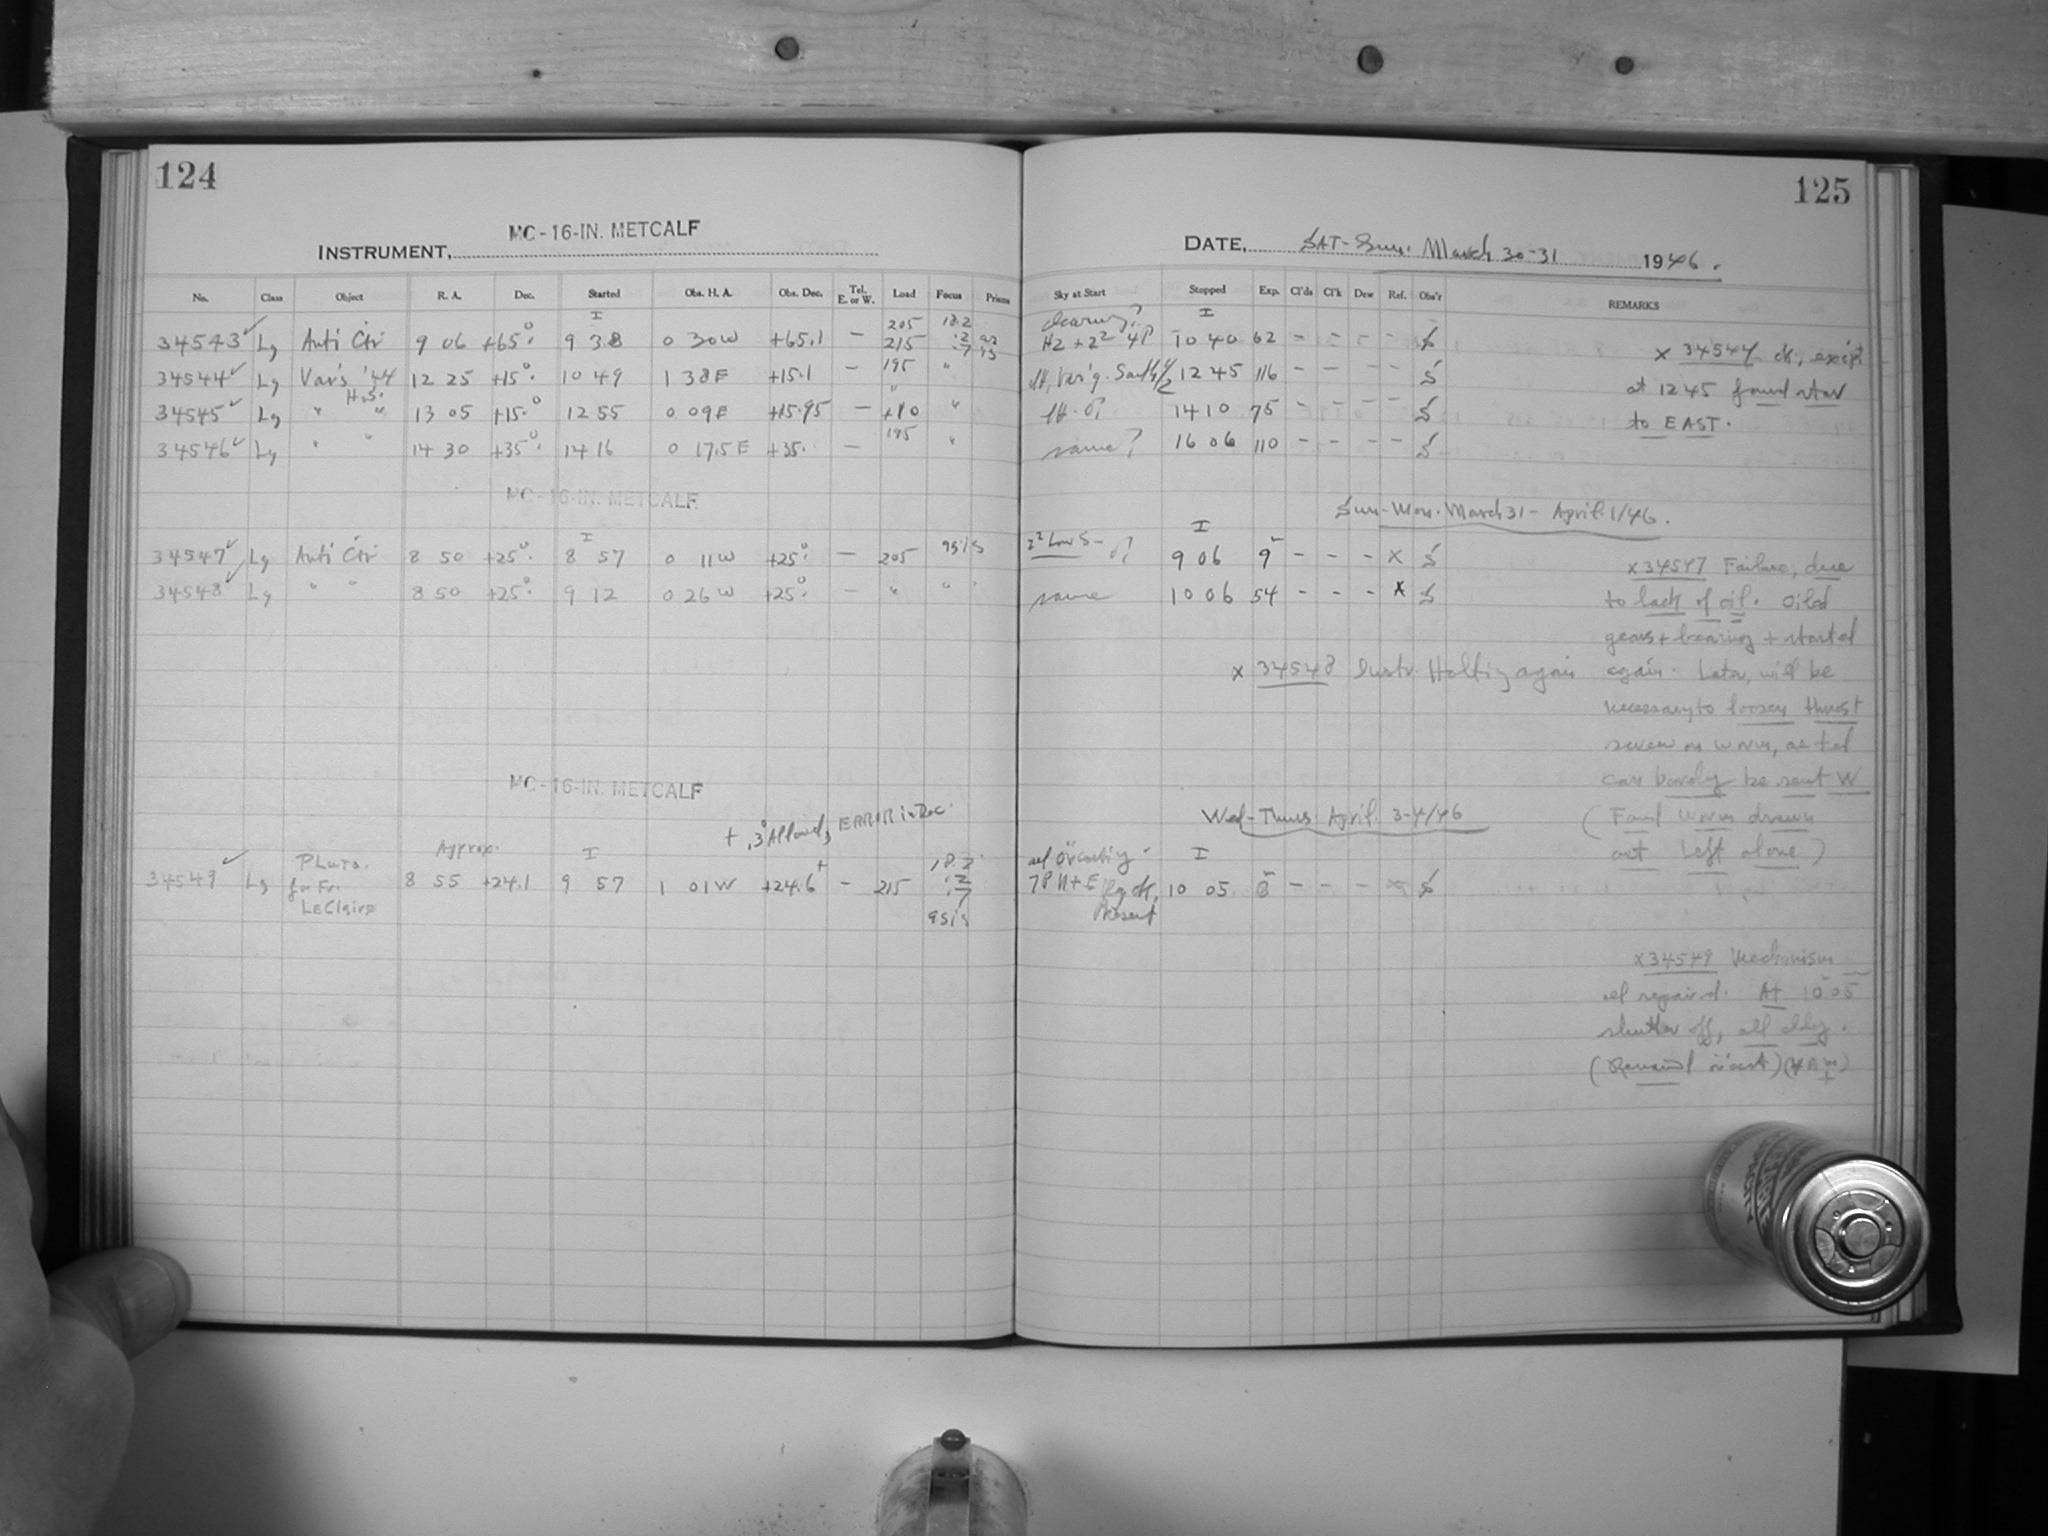 124
125
MC-16-IN. METCALF
INSTRUMENT,
DATE, SAT-Sun. March 30-31 1946.
No. Class Object R. A. Dec. Started Obs. H. A. Obs. Dec. Tel. E. or W. Load Focus Prism Sky at Start Stopped Exp. Cl'ds Cl'k Dew Ref. Obs'r REMARKS
I 205 18.2 clearing? I
34543 Lg Anti Ctr 9 06 +65°. 9 38 0 30W +65.1 — 215 .2 .7 H2 + 2² 4P 10 40 62 - - - - S
x 34544 ok, except
34544 Lg Var's '44 12 25 +15°. 10 49 1 38E +15.1 — 195 " 12 45 116 - - - - S
H.S.
at 1245 found star
34545 Lg " " 13 05 +15.° 12 55 0 09E +15.95 — +10 " 14 10 75 - - - - S
to EAST.
34546 Lg " " 14 30 +35°. 14 16 0 17.5E +35. — 195 " same? 16 06 110 - - - - S
MC-16-IN. METCALF
Sun-Mon. March 31 - April 1/46.
I I
34547 Lg Anti Ctr 8 50 +25°. 8 57 0 11W +25°. — 205 95/5 2² Low S- 9 06 9 - - - x S
x 34547 Failure, due
34548 Lg " " 8 50 +25°. 9 12 0 26W +25°. — " " same 10 06 54 - - - x S
to lack of oil. Oiled
gears + bearing + started
x 34548 Instr. Halting again
again. Later, will be
necessary to loosen thrust
screw on worm, as tel
can barely be sent W
MC-16-IN. METCALF
Wed-Thurs April 3-4/46
(Found worm drawn
out Left alone)
+ .3° Allowed, ERROR in Dec.
Approx. I I
34549 Lg Pluto. for Fr. LeClaire 8 55 +24.1 9 57 1 01W +24.6+ — 215 18.2 .2 .7 95/5 7P N+E 10 05 8 - - - S
x 34549 Mechanism
repaired. At 10 05
shutter off, all cldy.